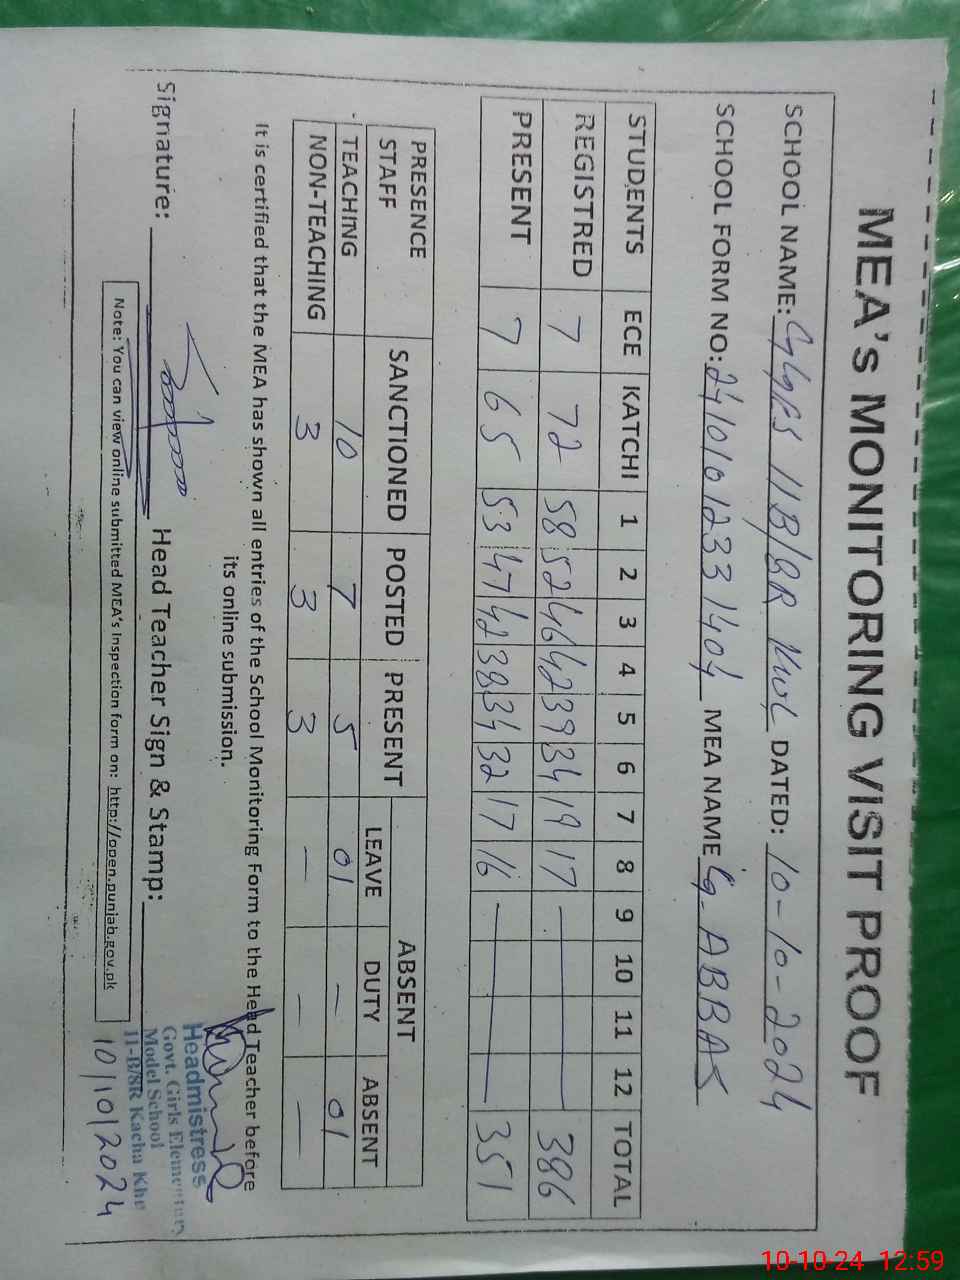 MEA's MONITORING VISIT PROOF
SCHOOL NAME: GGES 11B/8R DATED: 10-10-2024
SCHOOL FORM NO: 24101012331404 MEA NAME G. ABBAS
STUDENTS ECE KATCHI 1 2 3 4 5 6 7 8 9 10 11 12 TOTAL
REGISTRED 7 72 58 52 46 42 39 34 19 17 — 386
PRESENT 7 65 53 47 42 38 34 32 17 16 — 351
PRESENCE STAFF SANCTIONED POSTED PRESENT ABSENT
LEAVE DUTY ABSENT
TEACHING 10 7 5 01 — 01
NON-TEACHING 3 3 3 — — —
It is certified that the MEA has shown all entries of the School Monitoring Form to the Head Teacher before
its online submission.
Signature: Head Teacher Sign & Stamp:
Headmistress
Govt. Girls Elementary
Model School
11-B/8R Kacha Khu
10/10/2024
Note: You can view online submitted MEA's Inspection form on: http://open.punjab.gov.pk
10-10-24 12:59